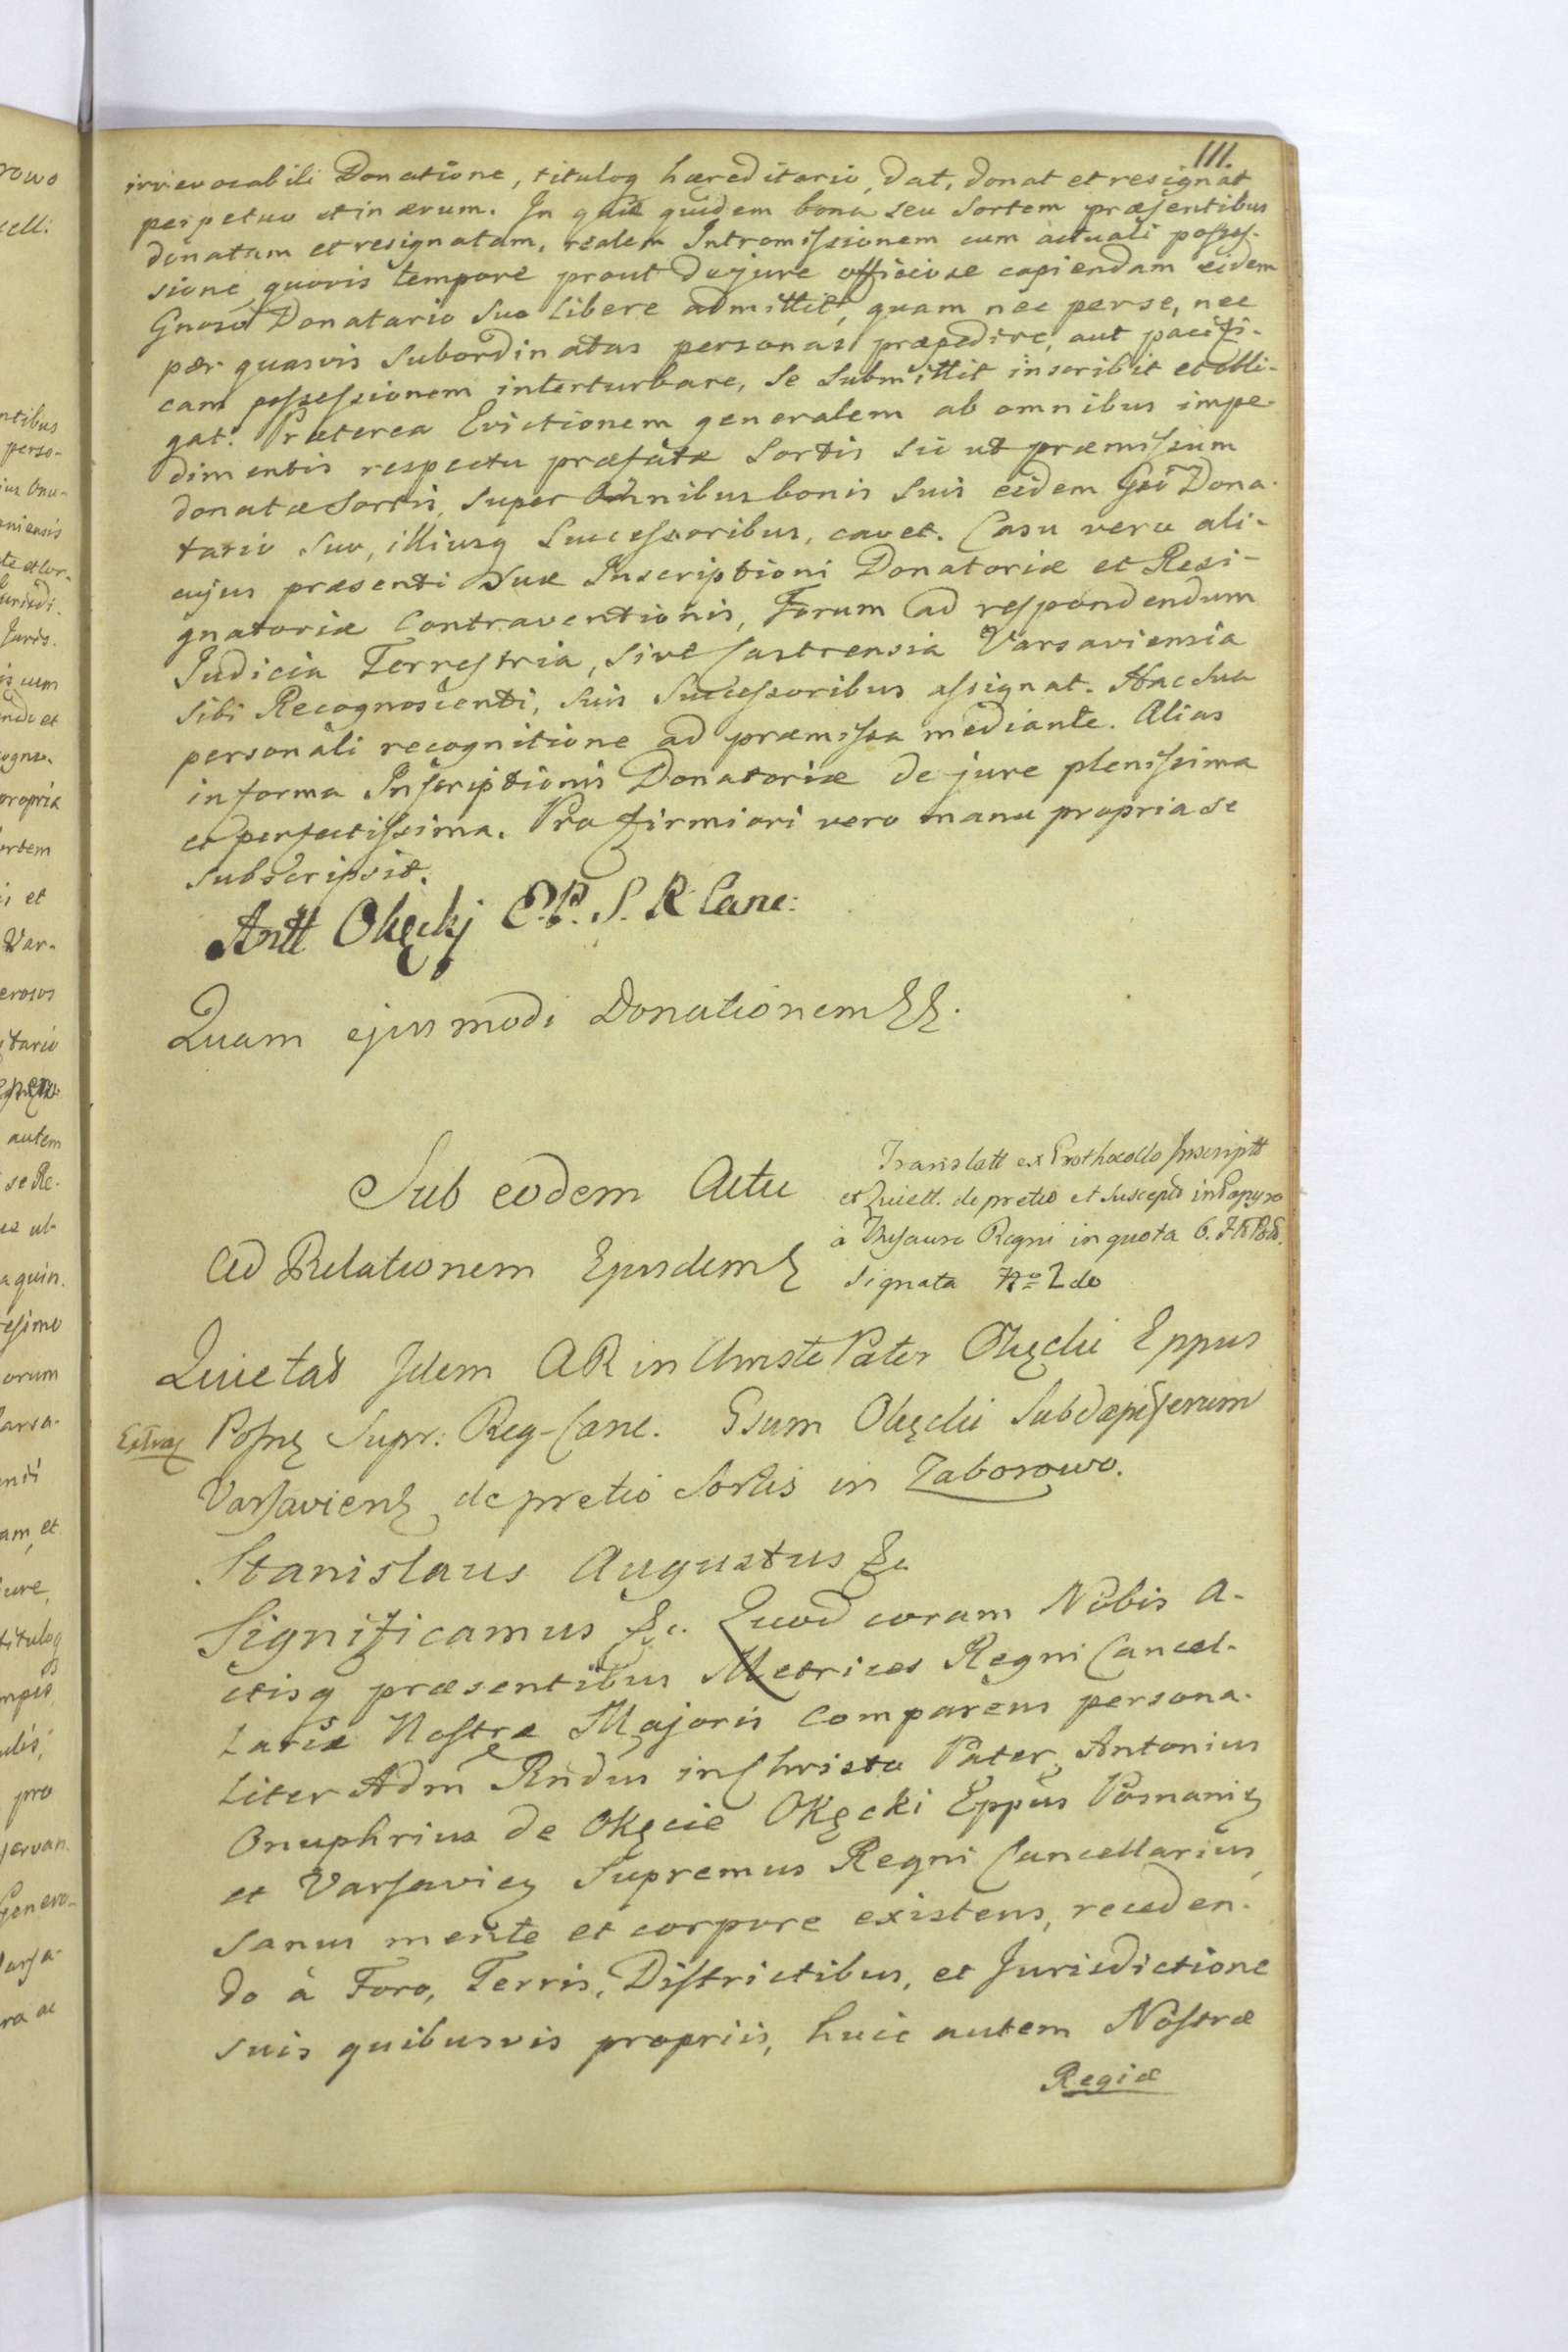 111.
irrevocabili Donatione, tituloq hæreditario, dat, donat et resignat
perpetuo et in ævum. In quæ quidem bona seu Sortem præsentibus
donatam et resignatam, realem Intromissionem cum actuali posses-
sione quovis tempore prout de jure officiose capiendam eidem
Gnoso Donatario Suo libere admittit, quam nec per se, nec
per quasvis Subordinatas personas præpedire, aut pacifi-
cam possessionem interturbare, Se Submittit inscribit et obli-
gat. Præterea Evictionem generalem ab omnibus impe-
dimentis respectu præfatæ Sortis Sic ut præmissum
donatæ Sortis, Super Omnibus bonis Suis eidem Gsō Dona-
tario Suo, illiusq Successoribus, cavet. Casu vero ali-
cujus præsenti Suæ Inscriptioni Donatoriæ et Resi-
gnatoriæ Contraventionis, Forum ad respondendum
Judicia Terrestria, Sive Castrensia Varsaviensia
Sibi Recognoscenti, Suis Successoribus assignat. Hac Sua
personali recognitione ad præmissa mediante. Alias
in forma Inscriptionis Donatoriæ de jure plenissima
et perfectissima. Pro firmiori vero manu propria se
Subscripsit.
Antt Okęckj E.P. S. R Canc:
Quam ejusmodi Donationem
Sub eodem Actu
Translatt ex Prothocollo Inscriptt
et Quiett. de pretio et Suscepto in Papyro
à Thesauro Regni in quota 6.
Signata No 2do
Ad Relationem Ejusdem
Quietat Idem AR in Christo Pater Okęcki Eppus
Posn Supr: Reg- Canc. Gsum Okęcki Subdapiferum
Varsaviens de pretio Sortis in Zaborowo.
Stanislaus Augustus &c.
Significamus &c. Quod coram Nobis A-
ctisq præsentibus Metrices Regni Cancel-
lariæ Nostræ Majoris Comparens persona-
liter Adm Rndus in Christo Pater Antonius
Onuphrius de Okęcie Okęcki Eppus Posnanię
et Varsavię Supremus Regni Cancellarius,
Sanus mente et corpore existens, receden-
do à Foro, Terris, Districtibus, et Jurisdictione
Suis quibusvis propriis, huic autem Nostræ
Regiæ